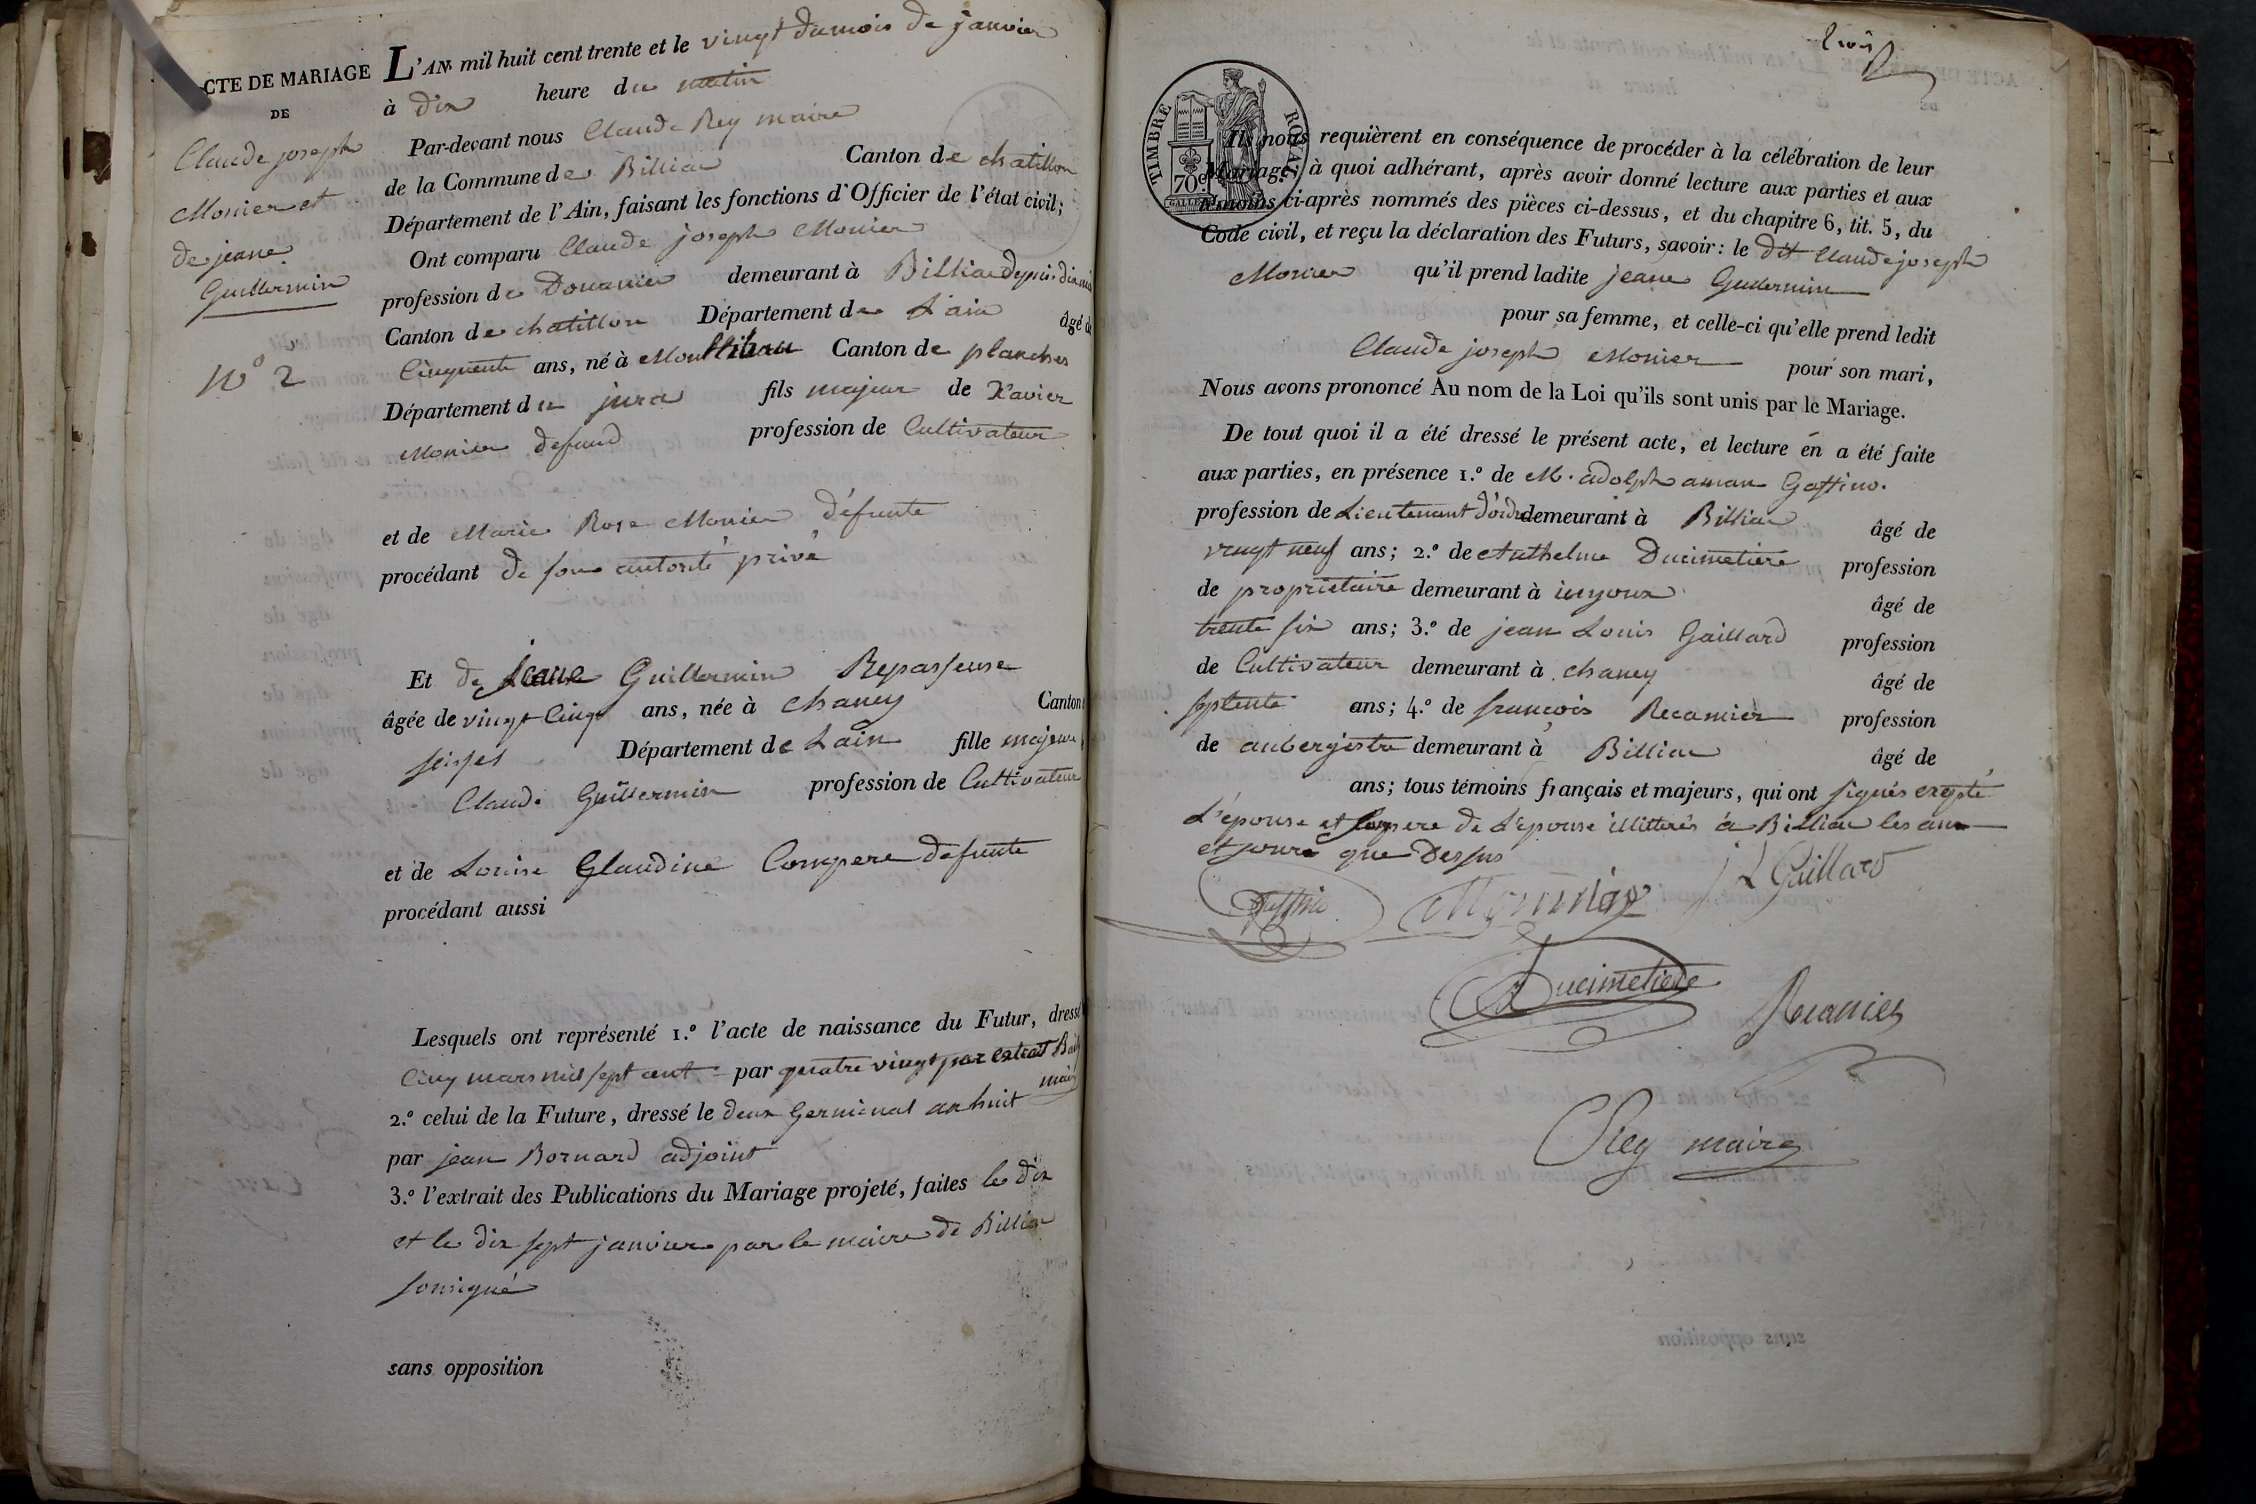 CTE DE MARIAGE
DE
Claude joseph
Monier et
de jeane
Guillermin
N° 2
L'AN mil huit cent trente et le vingt du mois de janvier
à dix heure du matin
Par-devant nous Claude Rey maire
de la Commune de Billiat Canton de chatillon
Département de l'Ain, faisant les fonctions d'Officier de l'état civil;
Ont comparu Claude joseph Monier
profession de Douanier demeurant à Billiat depuis dix
Canton de chatillon Département de L'ain âgé d
Cinquente ans, né à Canton de planches
Département du jura fils majeur de Xavier
Monier defund profession de Cultivateur
et de Marie Rose Monier défunte
procédant de son autorité privé
Et de Jeane Guillermin Repasseuse
âgée de vingt Cinq ans, née à Chaney Canton
seissel Département de Lain fille majeure
Claude Guillermin profession de Cultivateur
et de Louise Glaudine Compere defunte
procédant aussi
Lesquels ont représenté 1.° l'acte de naissance du Futur, dressé
Cinq mars mil sept cent par quatre vingt par extrait
maire
2.° celui de la Future, dressé le deux Germinal an huit
par jean Bornard adjoint
3.° l'extrait des Publications du Mariage projeté, faites le dix
et le dix sept janvier par le maire de Billiat
sousigné
sans opposition
TIMBRE ROYAL
70
Ils nous requièrent en conséquence de procéder à la célébration de leur
Mariage, à quoi adhérant, après avoir donné lecture aux parties et aux
témoins ci-après nommés des pièces ci-dessus, et du chapitre 6, tit. 5, du
Code civil, et reçu la déclaration des Futurs, savoir: le dit Claude joseph
Monier qu'il prend ladite jeane Guillermin
pour sa femme, et celle-ci qu'elle prend ledit
Claude joseph Monier pour son mari,
Nous avons prononcé Au nom de la Loi qu'ils sont unis par le Mariage.
De tout quoi il a été dressé le présent acte, et lecture en a été faite
aux parties, en présence 1.° de M. adolph aman Goffino.
profession de Lieutenant d'ordre demeurant à Billiat âgé de
vingt neuf ans; 2.° de Anthelme Ducimetiere profession
de propriétaire demeurant à injoux âgé de
trente six ans; 3.° de jean Louis Gaillard profession
de Cultivateur demeurant à chaney âgé de
septente ans; 4.° de françois Recamier profession
de aubergiste demeurant à Billiat âgé de
ans; tous témoins français et majeurs, qui ont signés exepté
L'épouse et le pere de L'epouse illitterés à Billiat les an
et jours que Dessus
J L Gaillard
Monnier
Ducimetiere
Recamier
Rey maire